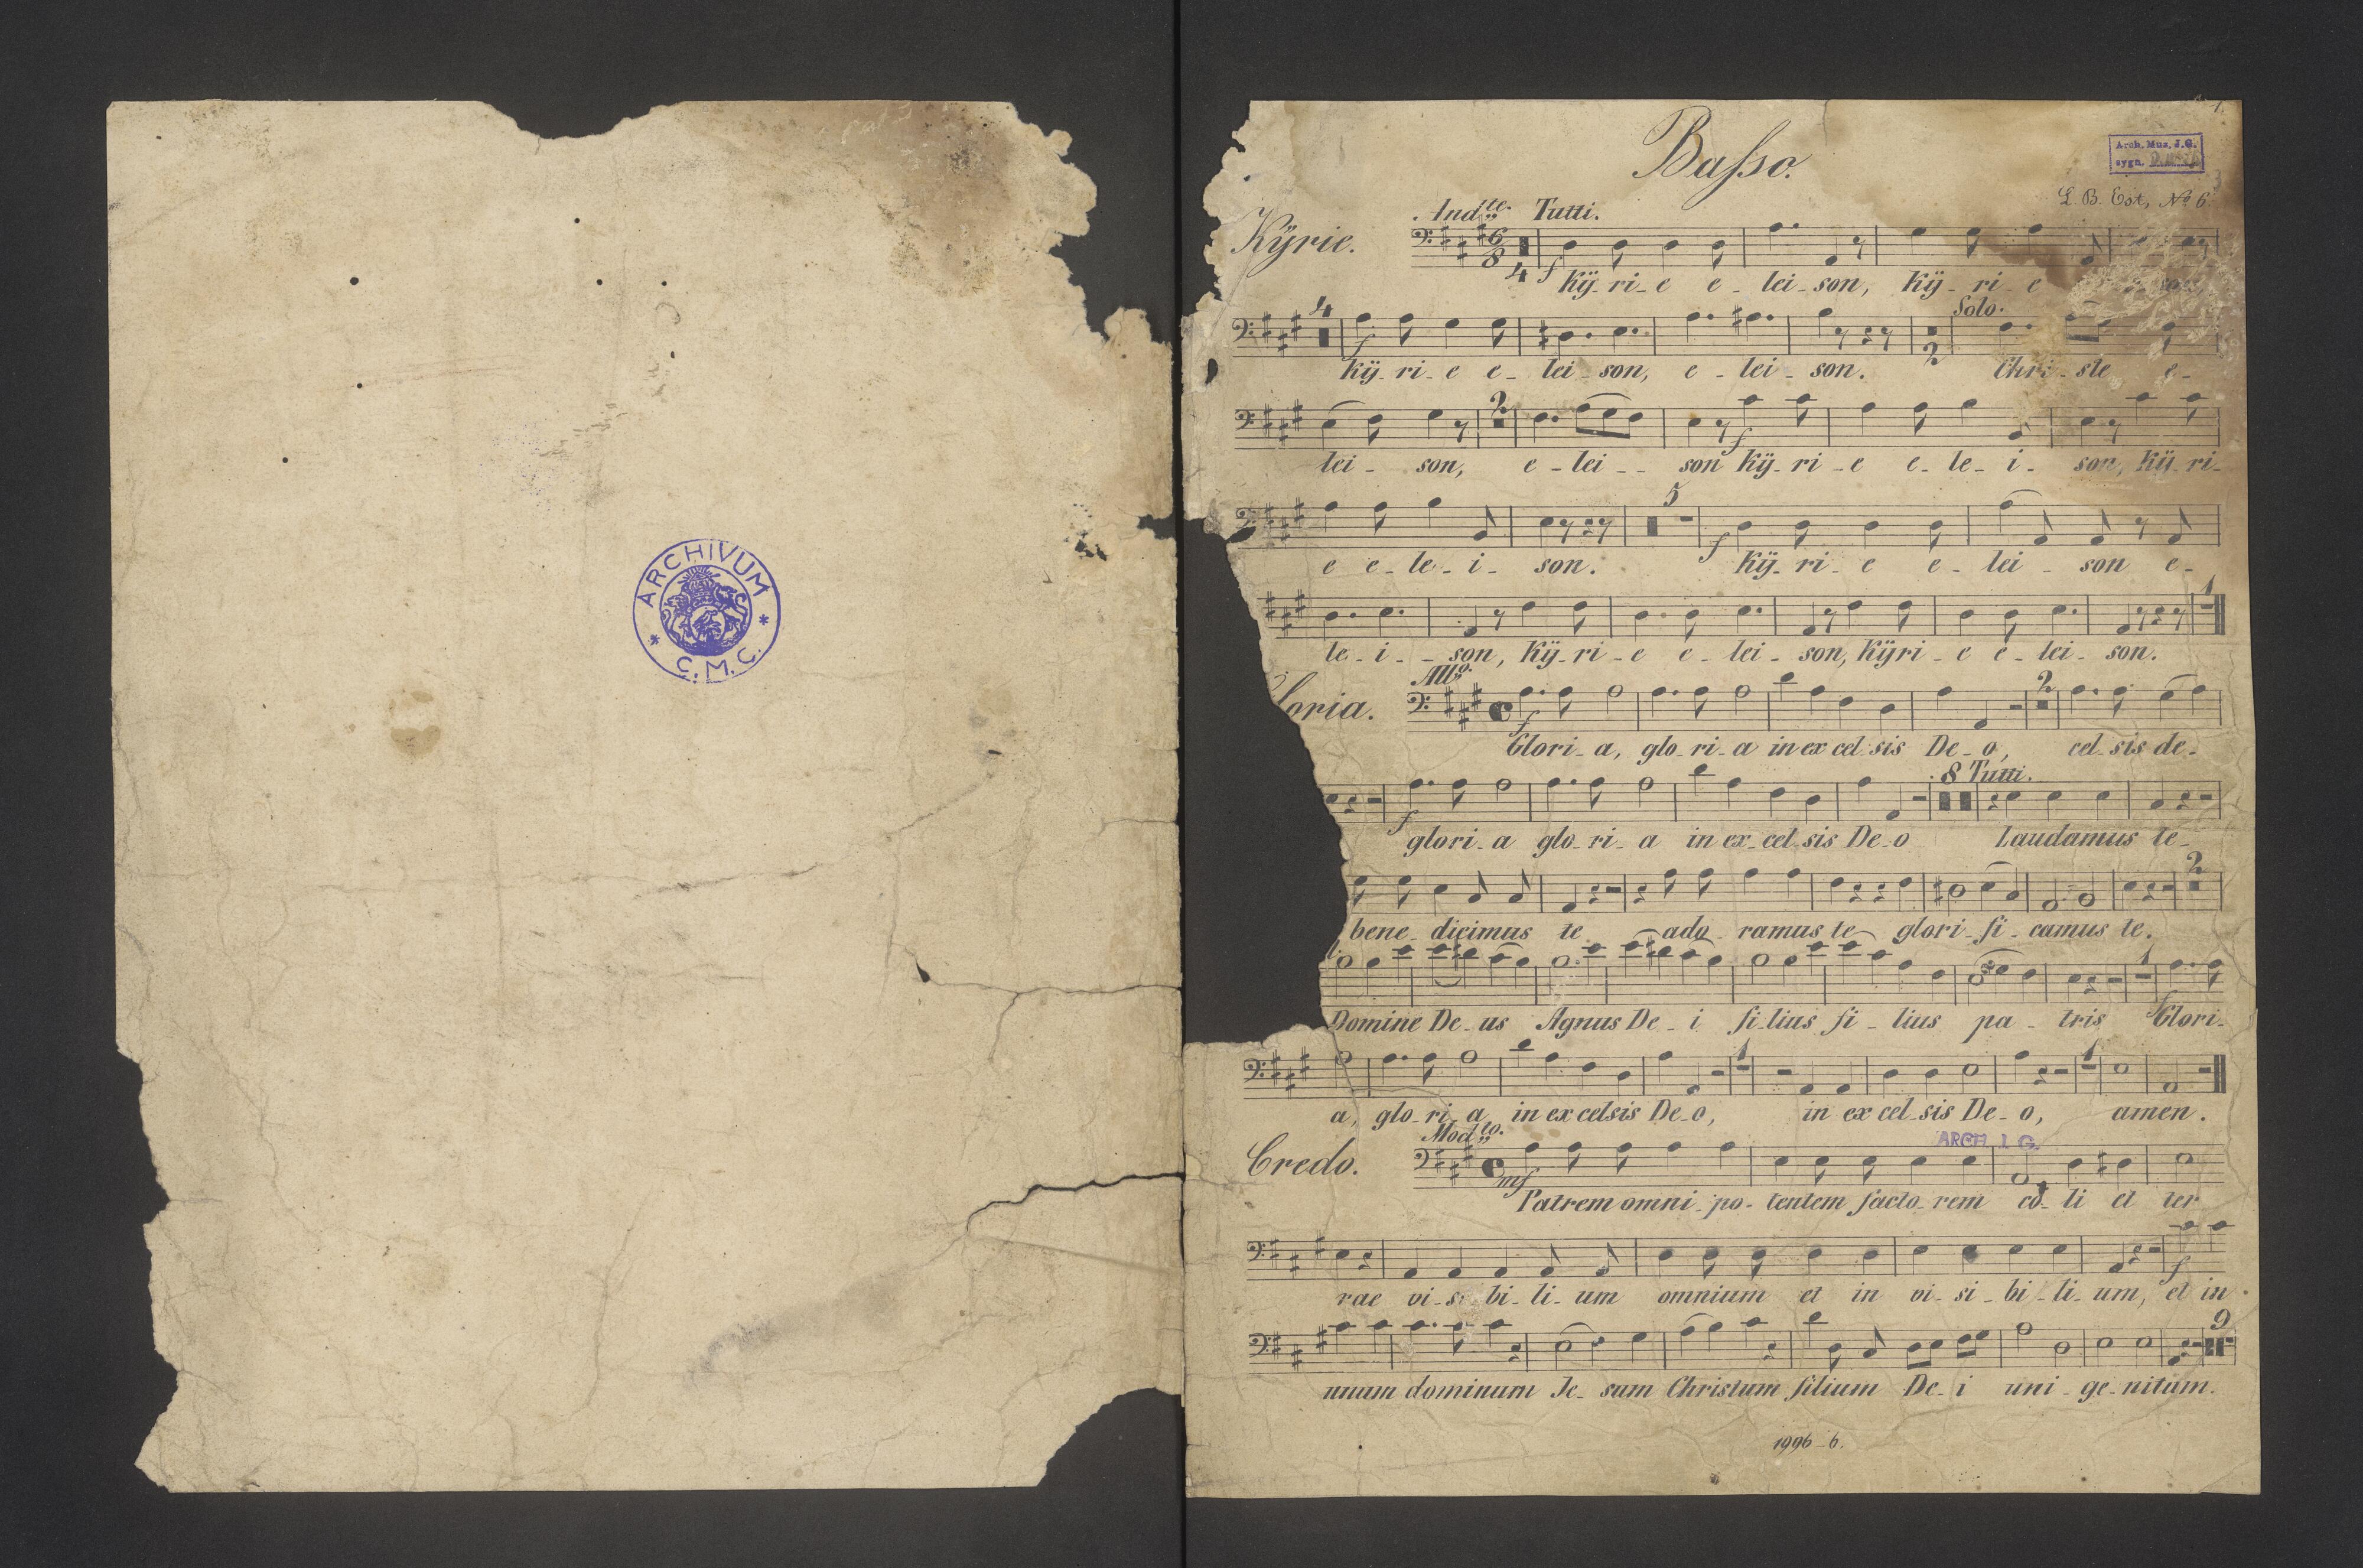 ARCHIVUM
* C.M.C. *
Baſso.
Arch. Muz. J.G.
sygn.
L B. Est, No 6.
Andte. Tutti.
Kÿrie.
6 8 4 f
Kÿ- ri- e e- lei- son, Kÿ- ri- e
4 f Solo. 2
Kÿ- ri- e e- lei- son, e- lei- son. Chri- ste e-
2 f
lei- son, e- lei- - son Kÿ- ri- e e- le- i- son, Kÿ- ri-
5 f
e e- le- i- son. Kÿ- ri- e e- lei- son e-
1
le- i- - son, Kÿ- ri- e e- lei- son, Kÿri- e e- lei- son.
Allo.
loria.
f 2
Glori- a, glo- ri- a in ex cel sis De- o, cel- sis de-
f 8 Tutti.
glori- a glo- ri- a in ex- cel- sis De- o Laudamus te-
2
bene- dicimus te ado- ramus te glori- fi- camus te.
1 f
Domine De- us Agnus De- i fi- lius fi- lius pa- tris Glori-
1 1
a, glo- ri- a in ex celsis De- o, in ex cel- sis De- o, amen.
Modto.
ARCH. J. G.
Credo.
mf
Patrem omni- po- tentem facto- rem cö- li et ter
f
rae vi- si bi- li- um omnium et in vi- si- bi- li- um, et in
9
unum dominum Je- sum Christum filium De- i uni- ge- nitum.
1996-6.